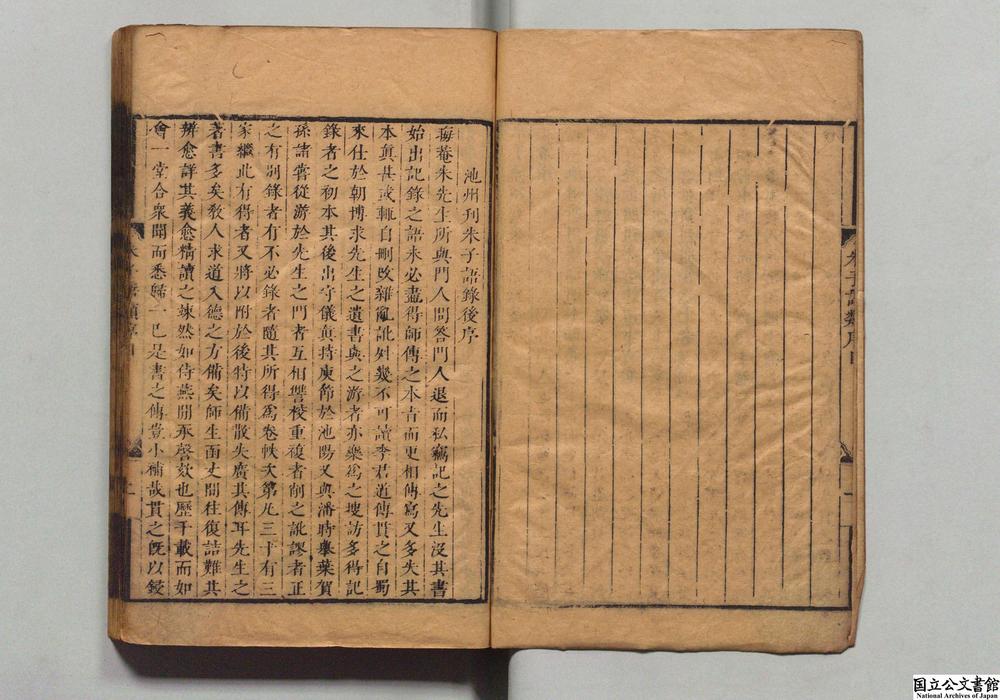 朱子語類序目
一
池州刊朱子語錄後序
晦菴朱先生所與門人問答門人退而私竊記之先生沒其書
始出記錄之語未必盡得師傳之本旨而更相傳寫又多失其
本眞甚或輒自刪改雜亂訛舛幾不可讀李君道傳貫之自蜀
來仕於朝博求先生之遺書與之游者亦樂爲之搜訪多得記
錄者之初本其後出守儀眞持庾節於池陽又與潘時舉葉賀
孫諸嘗從游於先生之門者互相讐校重複者削之訛謬者正
之有別錄者有不必錄者隨其所得爲卷帙次第凡三十有三
家繼此有得者又將以附於後特以備散失廣其傳耳先生之
著書多矣教人求道入德之方備矣師生函丈間往復詰難其
辨愈詳其義愈精讀之竦然如侍燕閒承謦欬也歷千載而如
會一堂合衆聞而悉歸一己是書之傳豈小補哉貫之旣以鋟
朱子語類序目
國立公文書館
National Archives of Japan